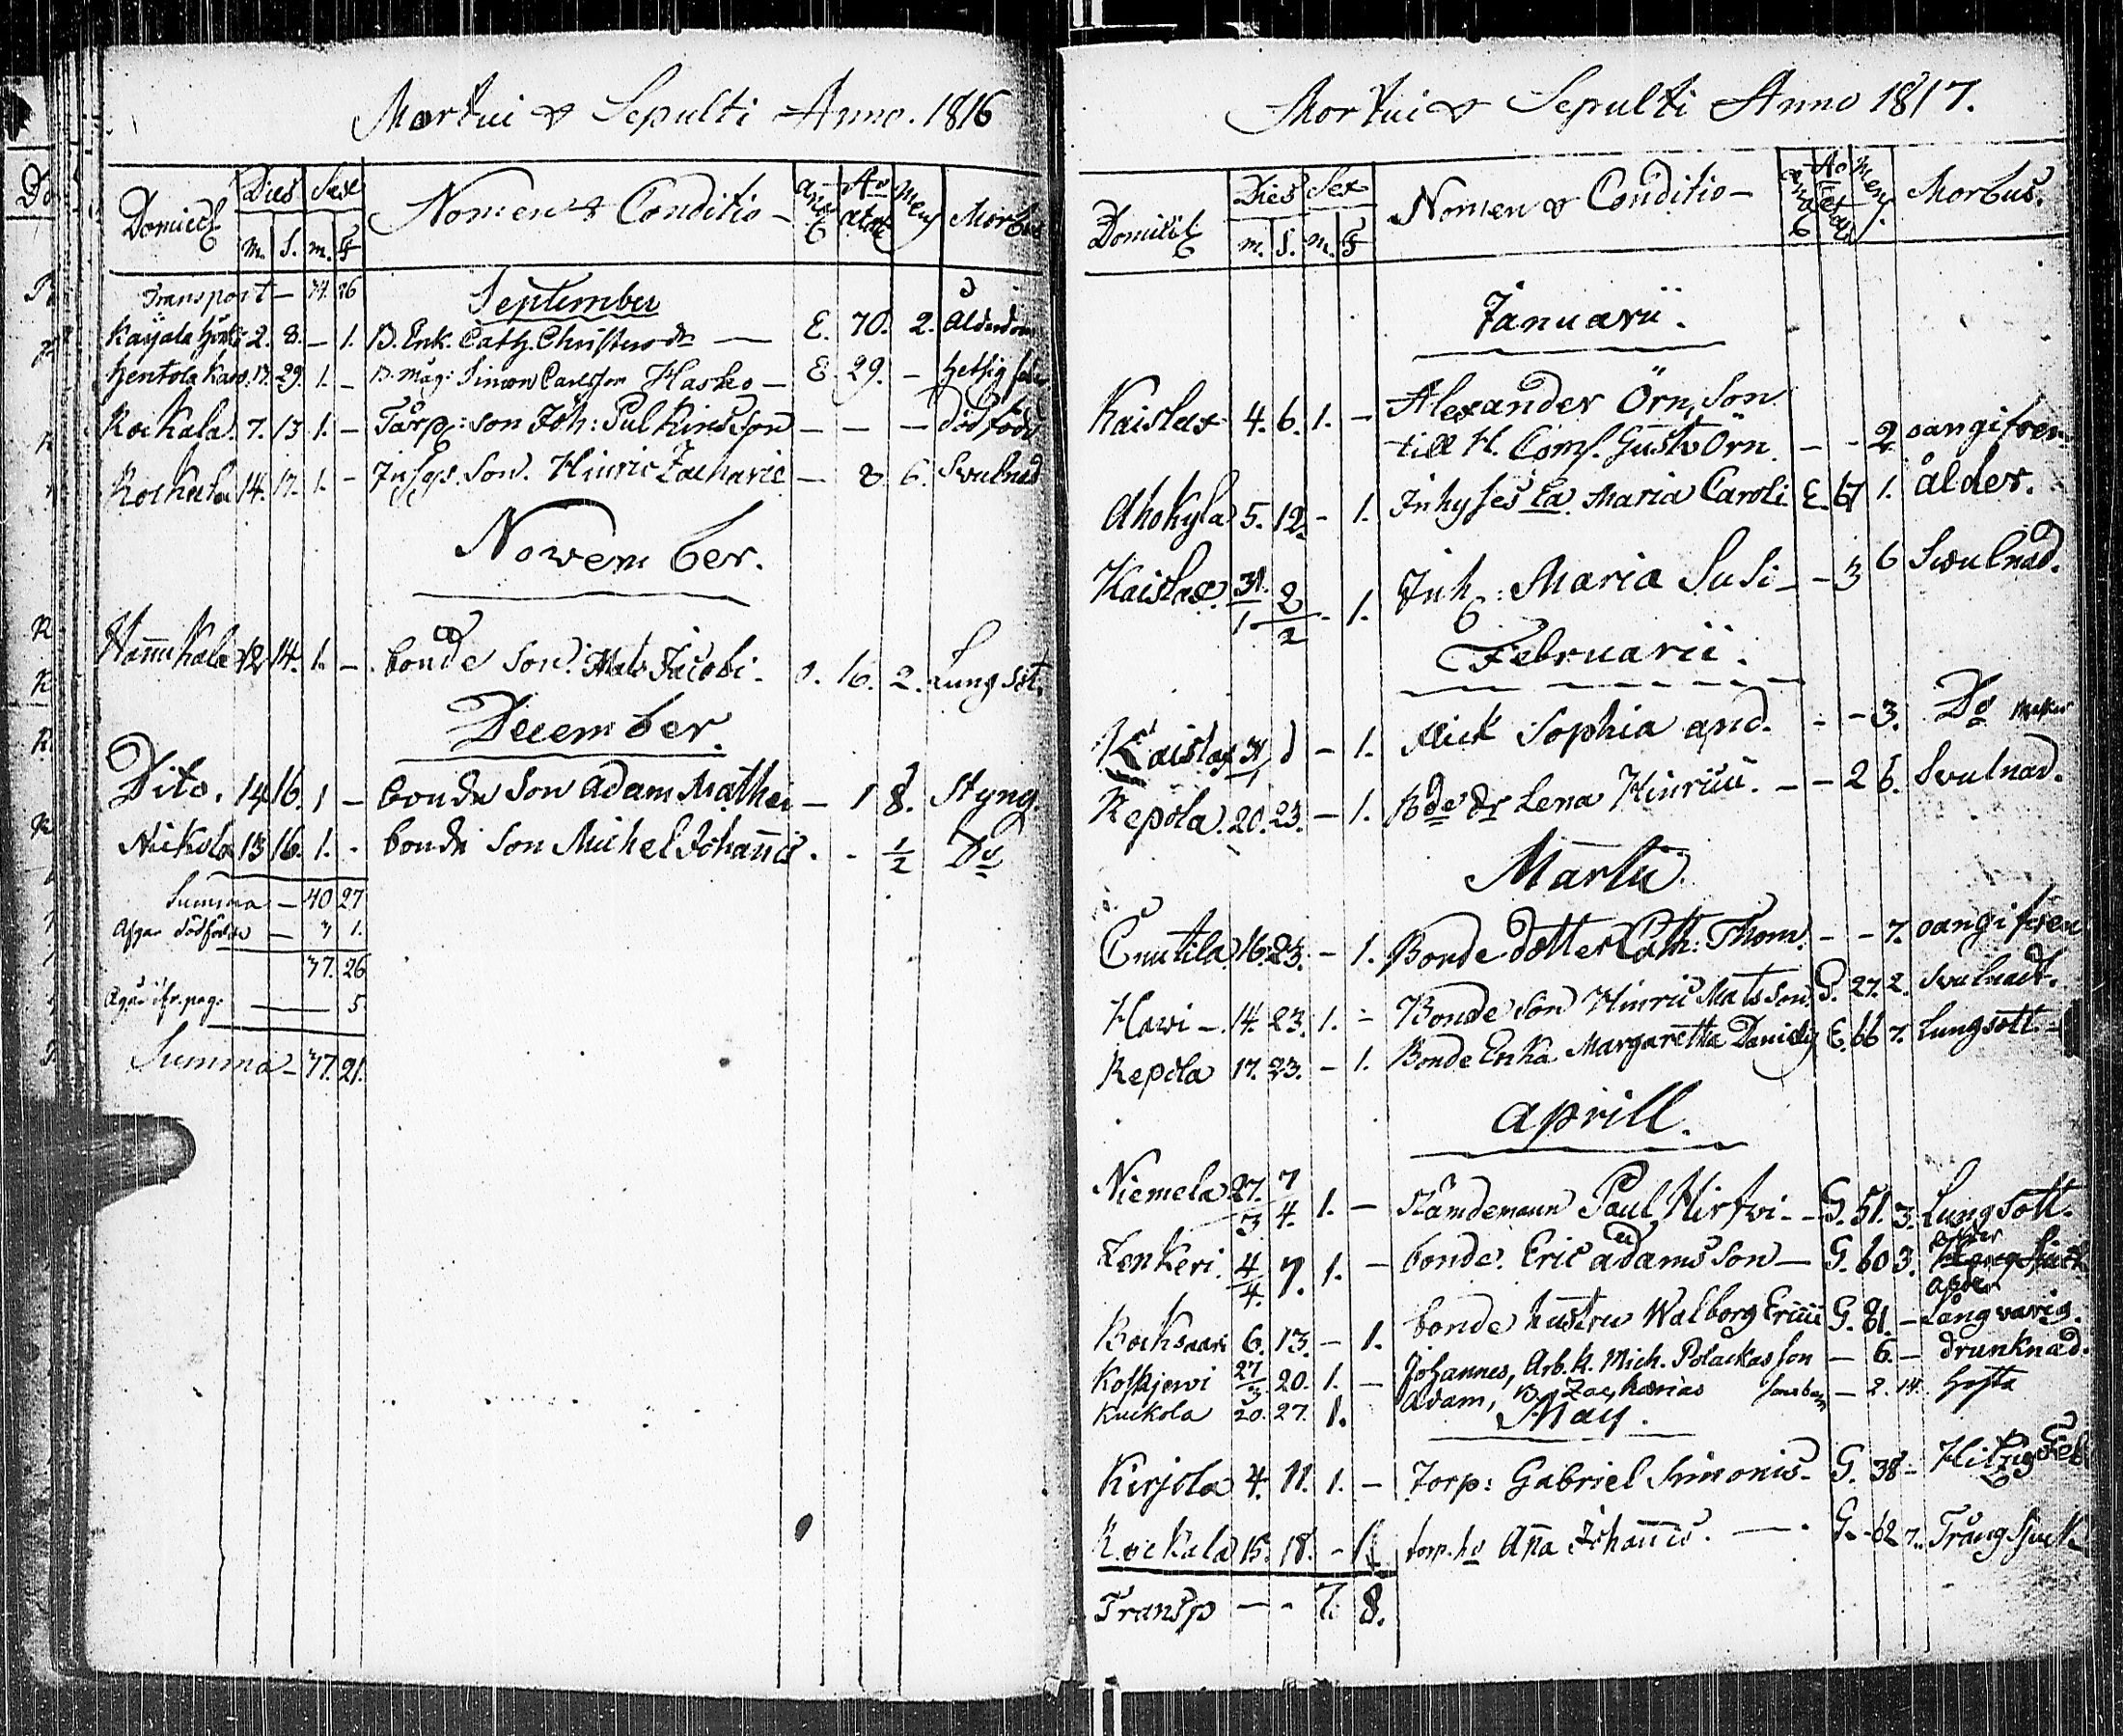 Mortui & Sepulti Anno. 1816
Domicil Dies Sex Nomen & Conditio Morbus
m. S. m. F
Transport — 34. 26
September
2. 8. — 1. B. Enk. Cath. Christers dr — E. 70. 2. Ålderdom
29. 1. — B. Måg: Simon Carlsson Hasko — E 29. — hetsig feber
Kockala. 7. 13 1. — Tårp: son Joh: Pulkinsson — — — död född
Kockala 14. 17. 1. — Inhys. Son. Hinric Zacharie — 8 6. Svulnad
November.
Hannukala 12 14. 1. — bonde son. Mats Jacobi. o. 16. 2. Lungsot.
December.
Dito. 14 16. 1 — bonde son Adam Mathei — 1 8. Styng.
Nickola 13 16. 1. - bonde son Michel Johannis. - 1/2 Do
Summa — 40 27
Afgår dödfödde — 3 1.
37. 26
5
Summa — 37. 21.
Mortui & Sepulti Anno 1817.
Domicil Dies Sex Nomen & Conditio — Morbus.
m. S. m. F
Januarii.
Kaislax 4. 6. 1. — Alexander Örn, Son
till H. Comf. Gust. Örn. — - 2 oangifven
Ahokyla 5. 12. - 1. Inhyses Ea Maria Caroli. E. 67 1. ålder.
Kaislax. 31/1 2/2 - 1. Inh: Maria Susi — - 3 6 Svulnad.
Februarii.
Kaislax 31/1 d — 1. Flick Sophia and. - - 3. Do
Repola. 20. 23. — 1. Bde dr Lena Hinrici. - - 2 6. Svulnad.
Martii.
Cnutila 16. 23. - 1. Bonde dotter Cath: Thom. - - 7. oangifven
Hawi — 14. 23. 1. - Bonde son Hinric Matsson G. 27. 2. Svulnad.
Repola 17. 23. — 1. Bonde Enka Margaretha Danielis E. 66 7. Lungsott.
aprill.
Niemela 27/3 7/4. 1. — Nämdemann Paul Hirfvi — G. 51. 3. Lungsott.
Lenkeri. 4/4. 7. 1. — bonde. Eric adamsson — G. 60 3.
Kocksaari 6. 13. — 1. bonde hustru Walborg Ericii G. 81. — Långvarig.
Koskjerwi 27/3. 20. 1. — Johannes, Arb. K. Mich. Polackas son — 6. — drunknad.
Kuckola 20. 27. 1. Adam, B. Zacharias sonsbarn — 2. 14. hosta
May.
Kirjola 4. 11. 1. — Torp: Gabriel Simonis — G. 38 — Hitzig Feb
Kockala 15. 18. - 1. torp. hu Anna Johannis. — G. 62 7. Trångsjuk
Transp — - 7. 8.